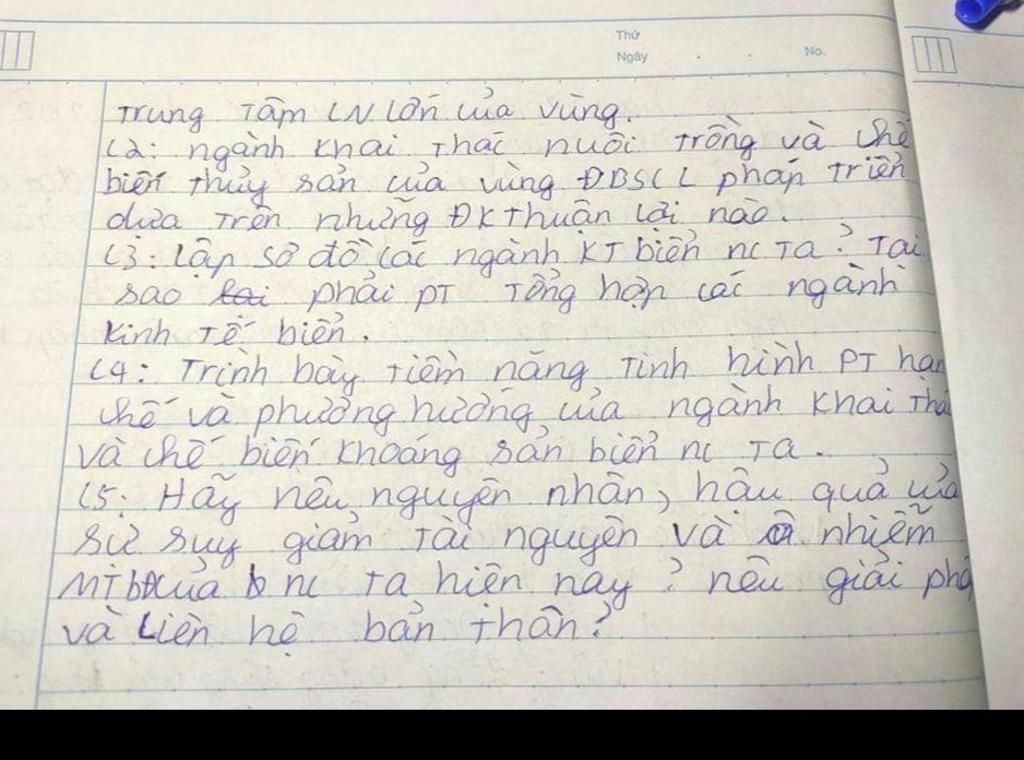 Thứ
Ngày . . No.
Trung Tâm CN lớn của vùng.
C2: ngành khai thác nuôi trồng và chế
biến thủy sản của vùng ĐBSCL phán triển
dựa trên những ĐK thuận lợi nào.
C3: Lập sơ đồ các ngành KT biển nc ta? Tại
sao phải PT tổng hợp các ngành
kinh tế biển.
C4: Trình bày tiềm năng tình hình PT hạn
chế và phương hướng của ngành khai thá
và chế biến khoáng sản biển nc ta.
C5: Hãy nêu nguyên nhân, hậu quả của
sự suy giảm tài nguyên và ô nhiễm
MTbĐ của nc ta hiện nay? nêu giải phá
và Liên hệ bản thân?